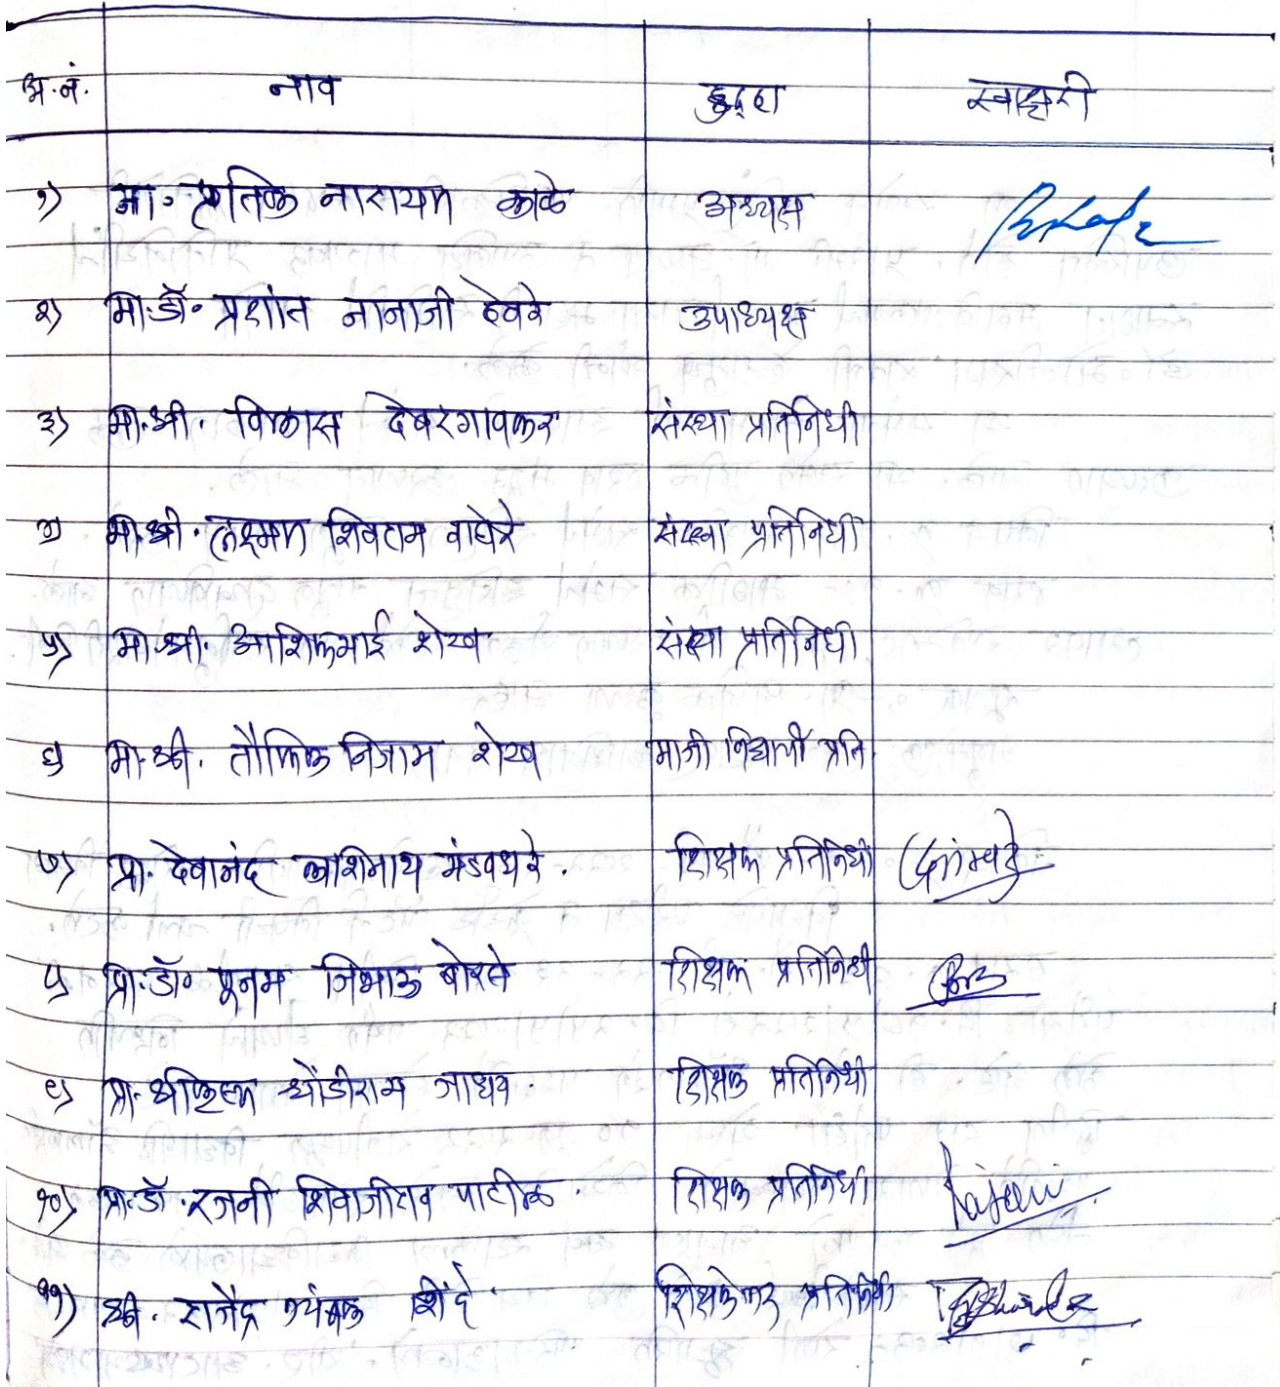 अ.नं. नाव हुद्दा स्वाक्षरी
१) मा. प्रतिक नारायण काळे अध्यक्ष
२) मा.डॉ. प्रशांत नानाजी देवरे उपाध्यक्ष
३) मा.श्री. विकास देवरगावकर संस्था प्रतिनिधी
४) मा.श्री. लक्ष्मण शिवराम वाघेरे संस्था प्रतिनिधी
५) मा.श्री. आशिकभाई शेख संस्था प्रतिनिधी
६) मा.श्री. तौफिक निजाम शेख माजी विद्यार्थी प्रति.
७) प्रा. देवानंद काशिनाथ मंडवधरे. शिक्षक प्रतिनिधी
८) प्रा.डॉ. पूनम निभाऊ बोरसे शिक्षक प्रतिनिधी
९) प्रा. श्रीकृष्ण धोंडीराम जाधव. शिक्षक प्रतिनिधी
१०) प्रा.डॉ. रजनी शिवाजीराव पाटील. शिक्षक प्रतिनिधी Rajani
११) श्री. राजेंद्र त्र्यंबक शिंदे. शिक्षकेतर प्रतिनिधी